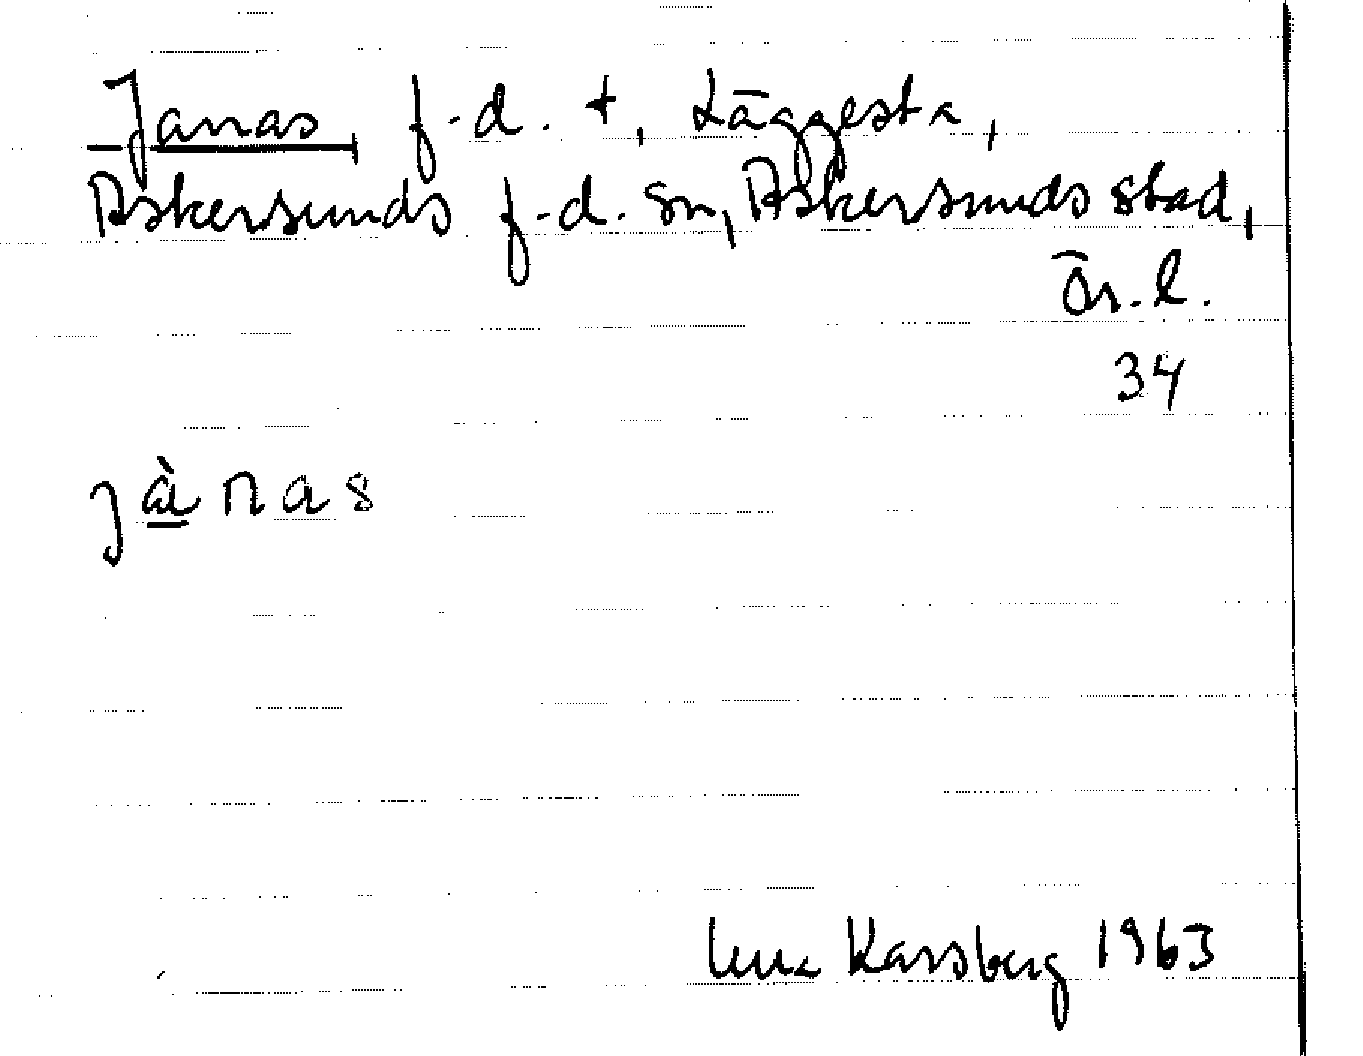 Janas, f.d. t, Läggesta,
Askersunds f.d. sn, Askersunds stad,
Ör.l.
34
jànas
Lena Karsberg 1963